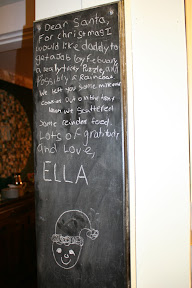 Dear Santa,
For christmas I
would like daddy to
get a Job by February
a really tricky Puzzle, and
Possibly a Raincoat.
We left you some milk and
cookies out on the table
when we scattered
some reindeer food.
Lots of gratitude
and Love,
ELLA